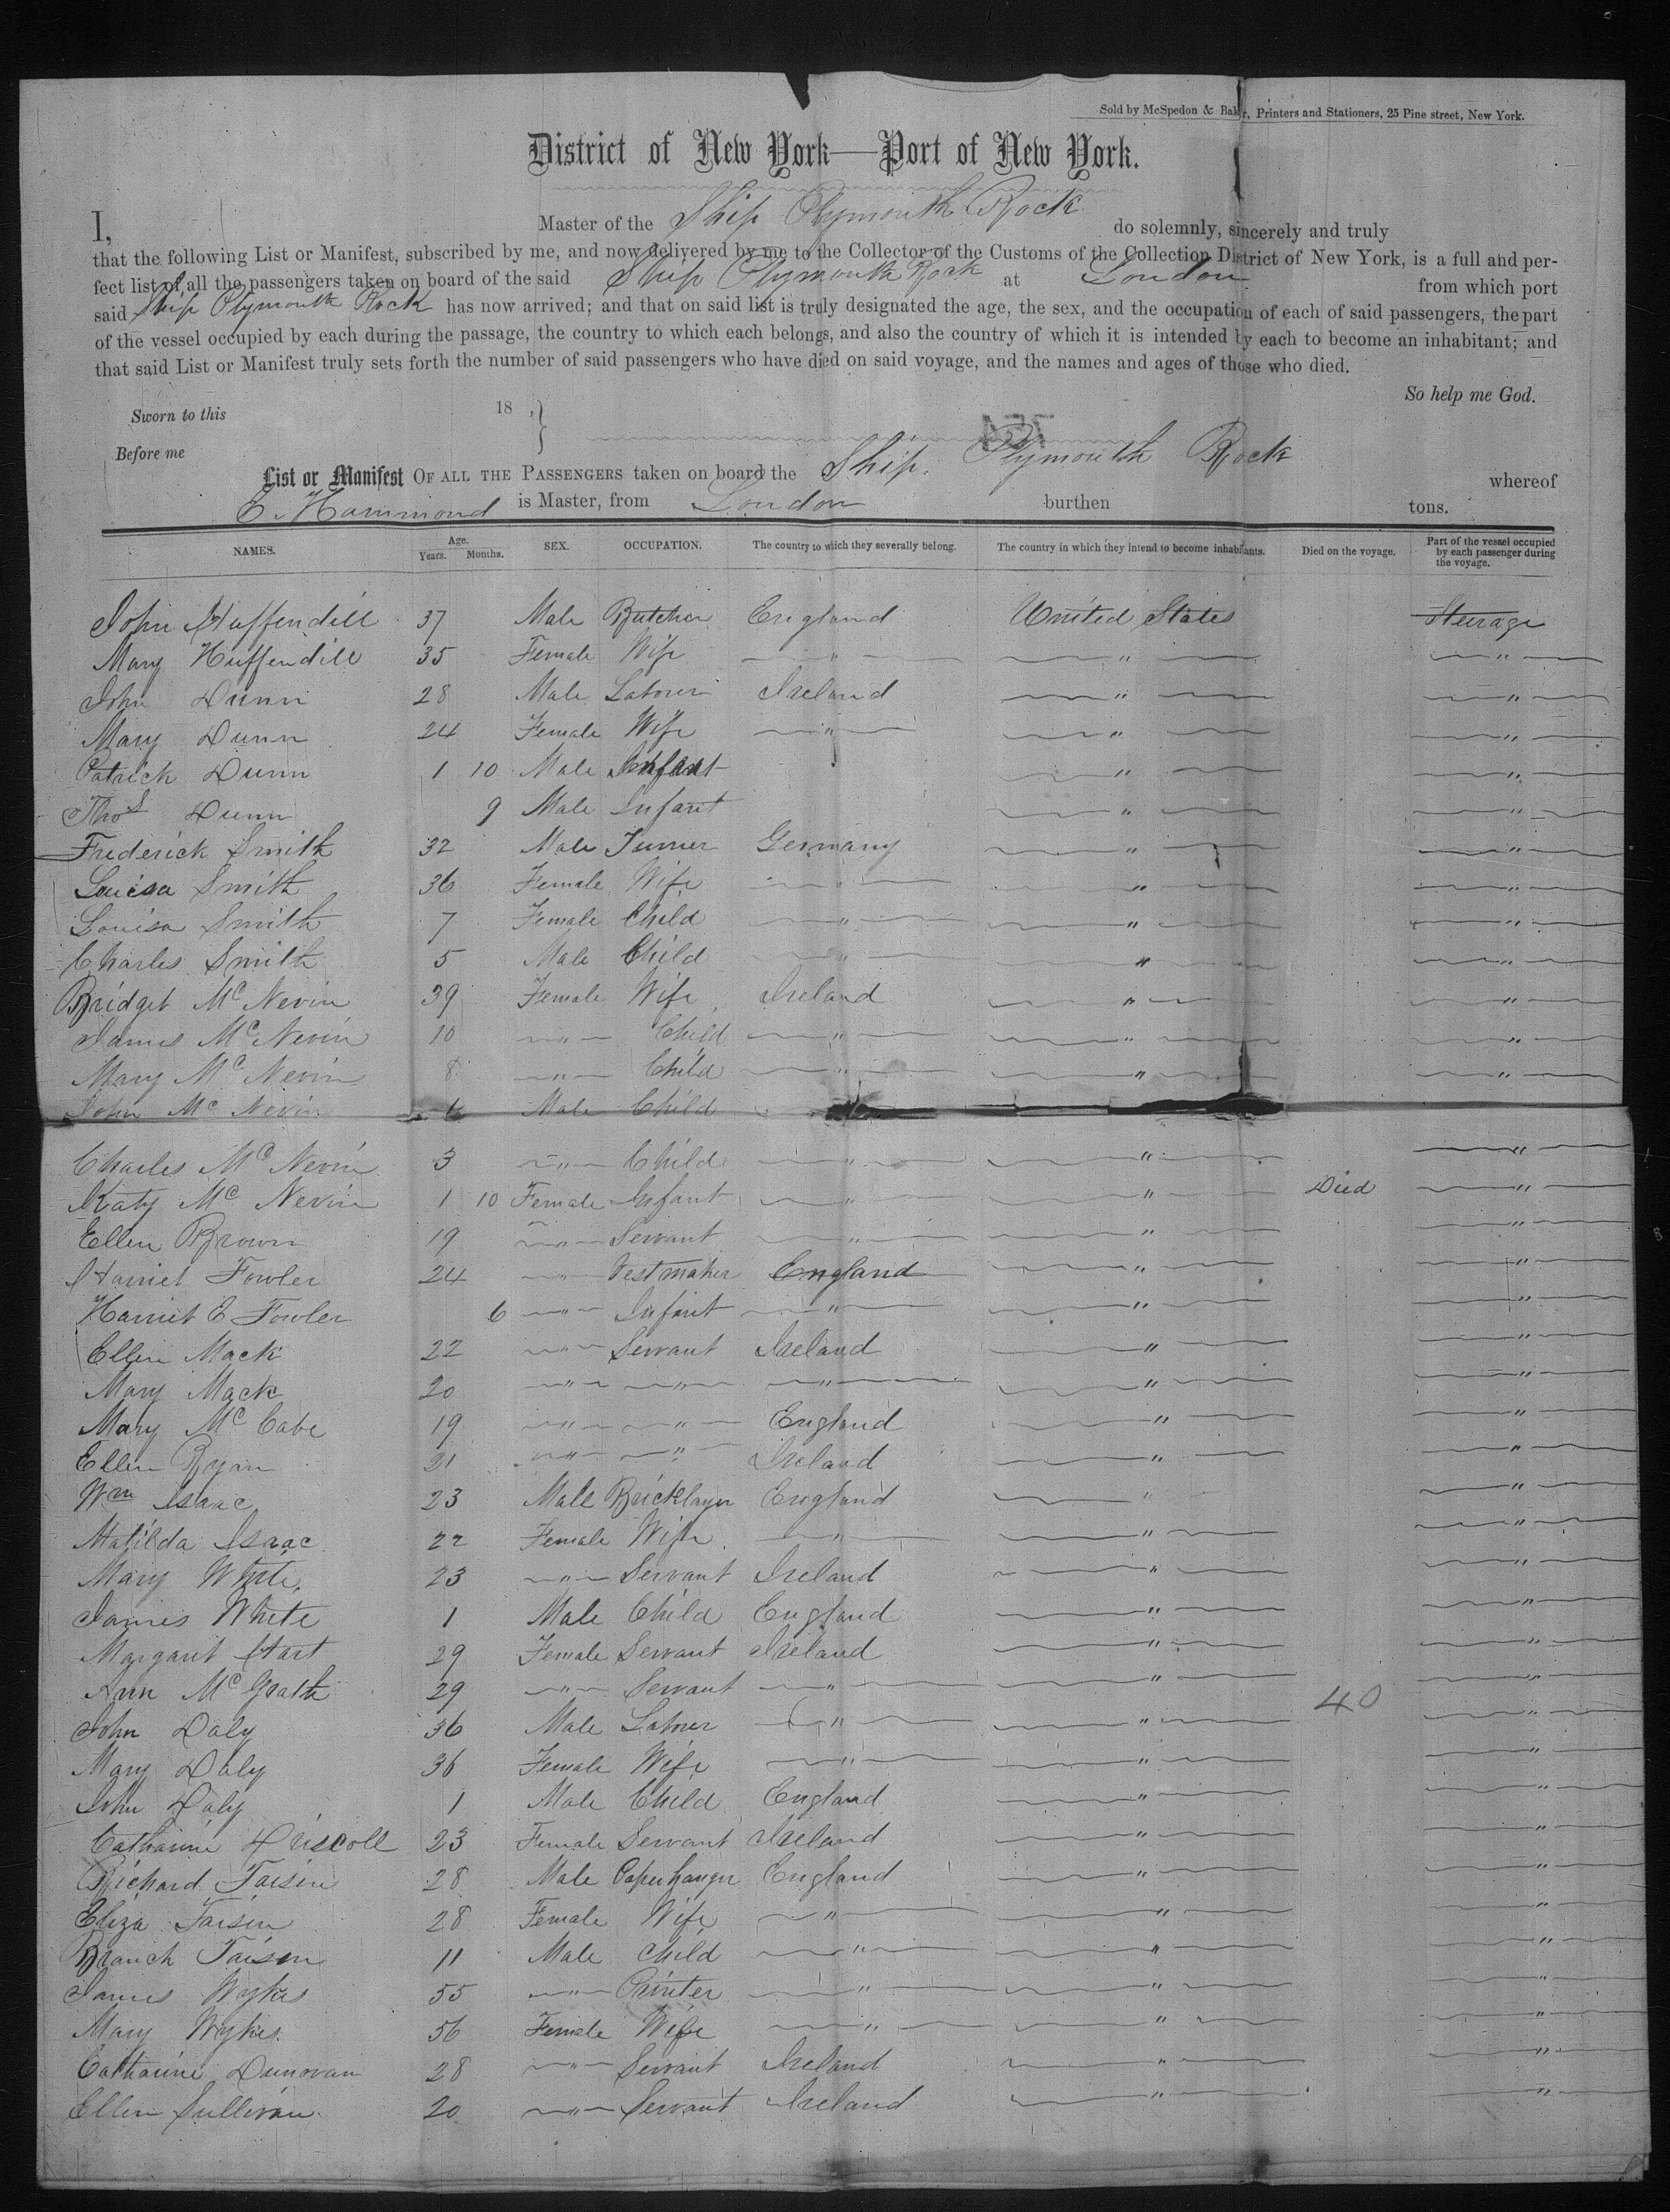 Sold by McSpedon & Baker, Printers and Stationers, 25 Pine street, New York.
District of New York—Port of New York.
I, Master of the Ship Plymouth Rock do solemnly, sincerely and truly
that the following List or Manifest, subscribed by me, and now delivered by me to the Collector of the Customs of the Collection District of New York, is a full and per-
fect list of all the passengers taken on board of the said Ship Plymouth Rock at London from which port
said Ship Plymouth Rock has now arrived; and that on said list is truly designated the age, the sex, and the occupation of each of said passengers, the part
of the vessel occupied by each during the passage, the country to which each belongs, and also the country of which it is intended by each to become an inhabitant; and
that said List or Manifest truly sets forth the number of said passengers who have died on said voyage, and the names and ages of those who died.
So help me God.
Sworn to this 18 ,}
Before me
List or Manifest OF ALL THE PASSENGERS taken on board the Ship. Plymouth Rock whereof
E. Hammond is Master, from London burthen tons.
NAMES. Age. Years. Months. SEX. OCCUPATION. The country to which they severally belong. The country in which they intend to become inhabitants. Died on the voyage. Part of the vessel occupied by each passenger during the voyage.
John Huffendill 37 Male Butcher England United States Steerage
Mary Huffendill 35 Female Wife " " "
John Dunn 28 Male Labourer Ireland " "
Mary Dunn 24 Female Wife " " "
Patrick Dunn 1 10 Male Infant " "
Thos Dunn 9 Male Infant " "
Frederick Smith 32 Male Germany " "
Louisa Smith 36 Female Wife " " "
Louisa Smith 7 Female Child " " "
Charles Smith 5 Male Child " " "
Bridget Mc Nevin 39 Female Wife Ireland " "
James Mc Nevin 10 " Child " " "
Mary Mc Nevin 8 " Child " " "
John Mc Nevin Male Child
Charles Mc Nevin 3 " Child " " "
Katy Mc Nevin 1 10 Female Infant " " Died "
Ellen Brown 19 " Servant " " "
Harriet Fowler 24 " Vestmaker England " "
Harriet E Fowler 6 " Infant " " "
Ellen Mack 22 " Servant Ireland " "
Mary Mack 20 " " " " "
Mary Mc Cabe 19 " " England " "
Ellen Ryan 21 " " Ireland " "
Wm Isaac 23 Male Bricklayer England " "
Matilda Isaac 22 Female Wife " " "
Mary White 23 " Servant Ireland " "
James White 1 Male Child England " "
Margaret Hart 29 Female Servant Ireland " "
Ann Mc Grath 29 " Servant " " 40 "
John Daly 36 Male Labourer " " "
Mary Daly 36 Female Wife " " "
John Daly 1 Male Child England " "
Catharine Driscoll 23 Female Servant Ireland " "
Richard Taisen 28 Male Paperhanger England " "
Eliza Taisen 28 Female Wife " " "
Branch Taisen 11 Male Child " " "
James Wykes 55 " Printer " " "
Mary Wykes 56 Female Wife " " "
Catharine Dunovan 28 " Servant Ireland " "
Ellen Sullivan 20 " Servant Ireland " "